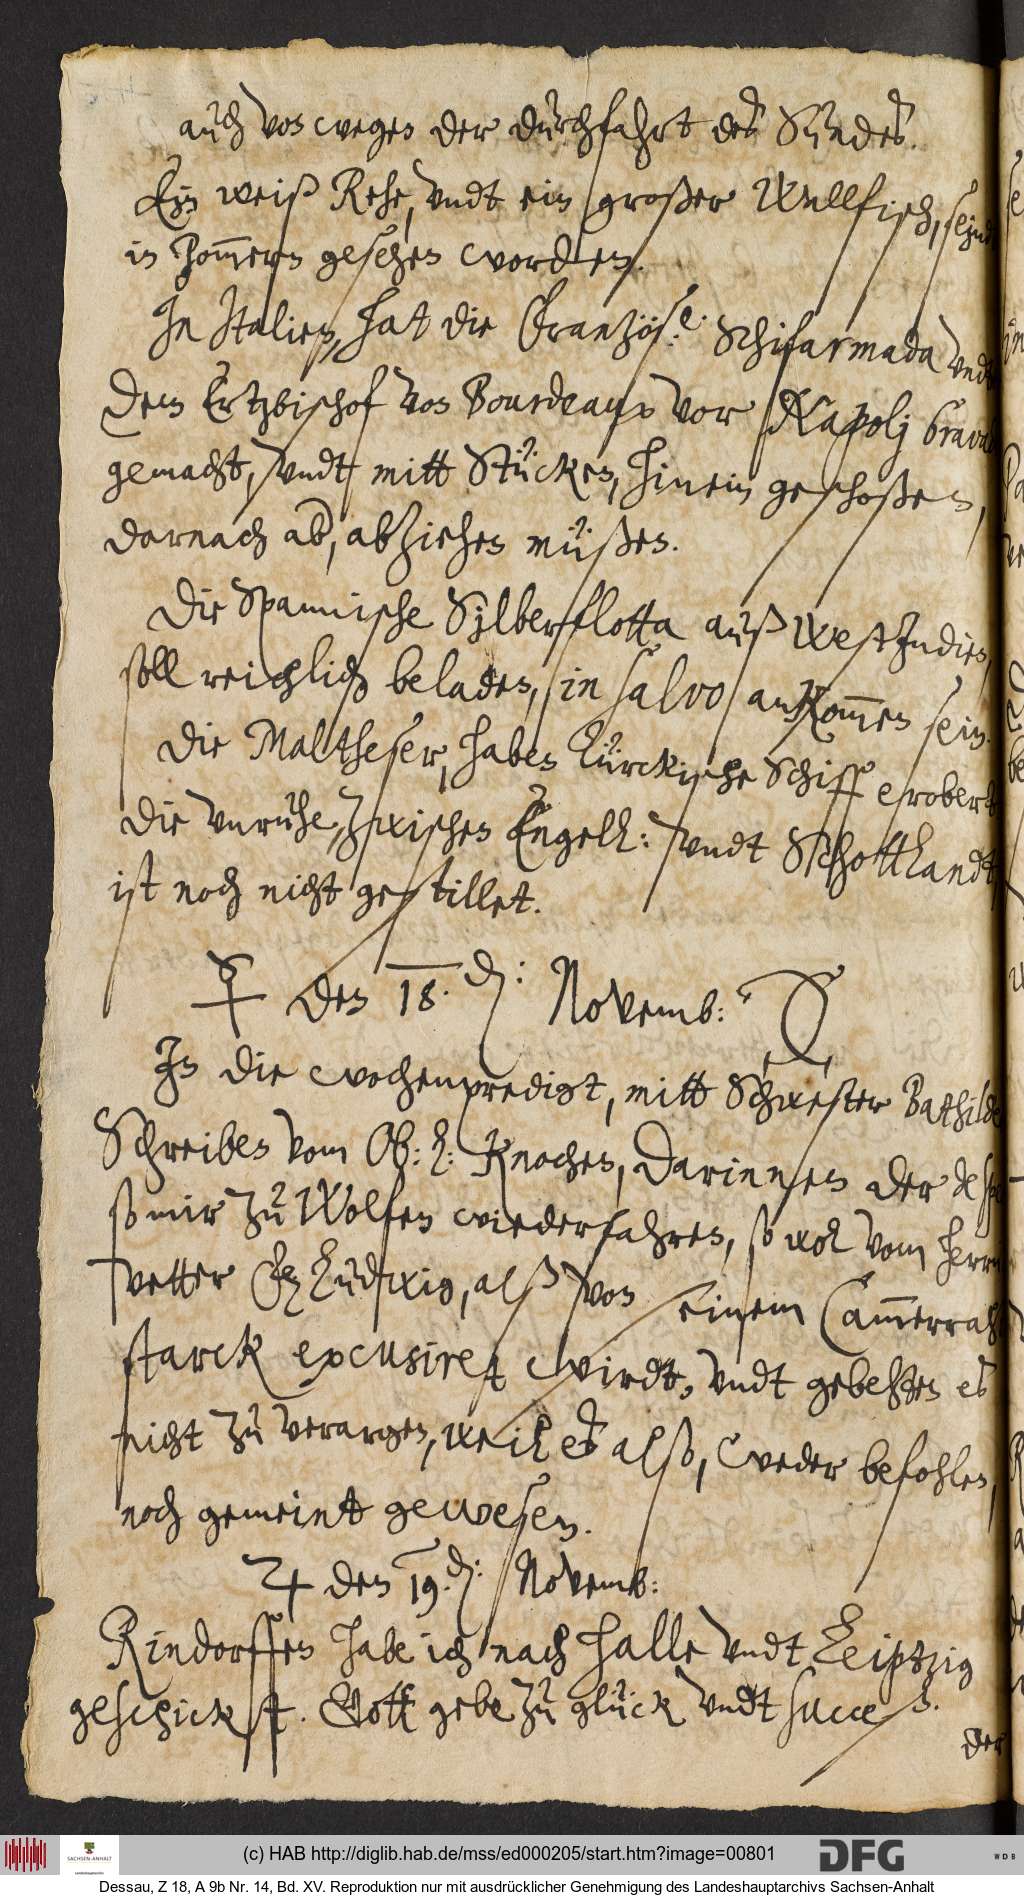 auch von wegen der durchfahrt des Sundes.
Ein weiß Rehe, vndt ein großer Wallfisch, seind
in Pom̄ern gesehen worden.
In Italien, hat die Französ:e Schifarmada vndt
dem Ertzbischof von Bourdeaux vor Napolj brava
gemacht, vndt mitt Stücken, hinein geschoßen,
darnach ab, abziehen müßen.
Die Spannische Sylberflotta auß WestIndien,
soll reichlich beladen, in salvo ankom̄en sein.
Die Maltheser, haben Türckische Schiff erobert
Die vnruhe, zwischen Engell: vndt Schottlandt,
ist noch nicht gestillet.
☿ den 18. d: Novemb:
In die wochenpredigt, mitt Schwester Bathilde
Schreiben vom Ob: L: Knochen, darinnen der
so mir zu Wolfen wiederfahren, so wol vom herrn
vetter F Ludwig, alß von einem Cam̄errath
starck excusiret wirdt, vndt gebehten es
nicht zu verargen, weil es also, weder befohlen,
noch gemeint gewesen.
♃ den 19. d: Novemb:
Rindorffen habe ich nach Halle vndt Leiptzig
geschickt. Gott gebe zu glück vndt succeß.
der
(c) HAB http://diglib.hab.de/mss/ed000205/start.htm?image=00801
SACHSEN-ANHALT
DFG
WDB
Dessau, Z 18, A 9b Nr. 14, Bd. XV. Reproduktion nur mit ausdrücklicher Genehmigung des Landeshauptarchivs Sachsen-Anhalt